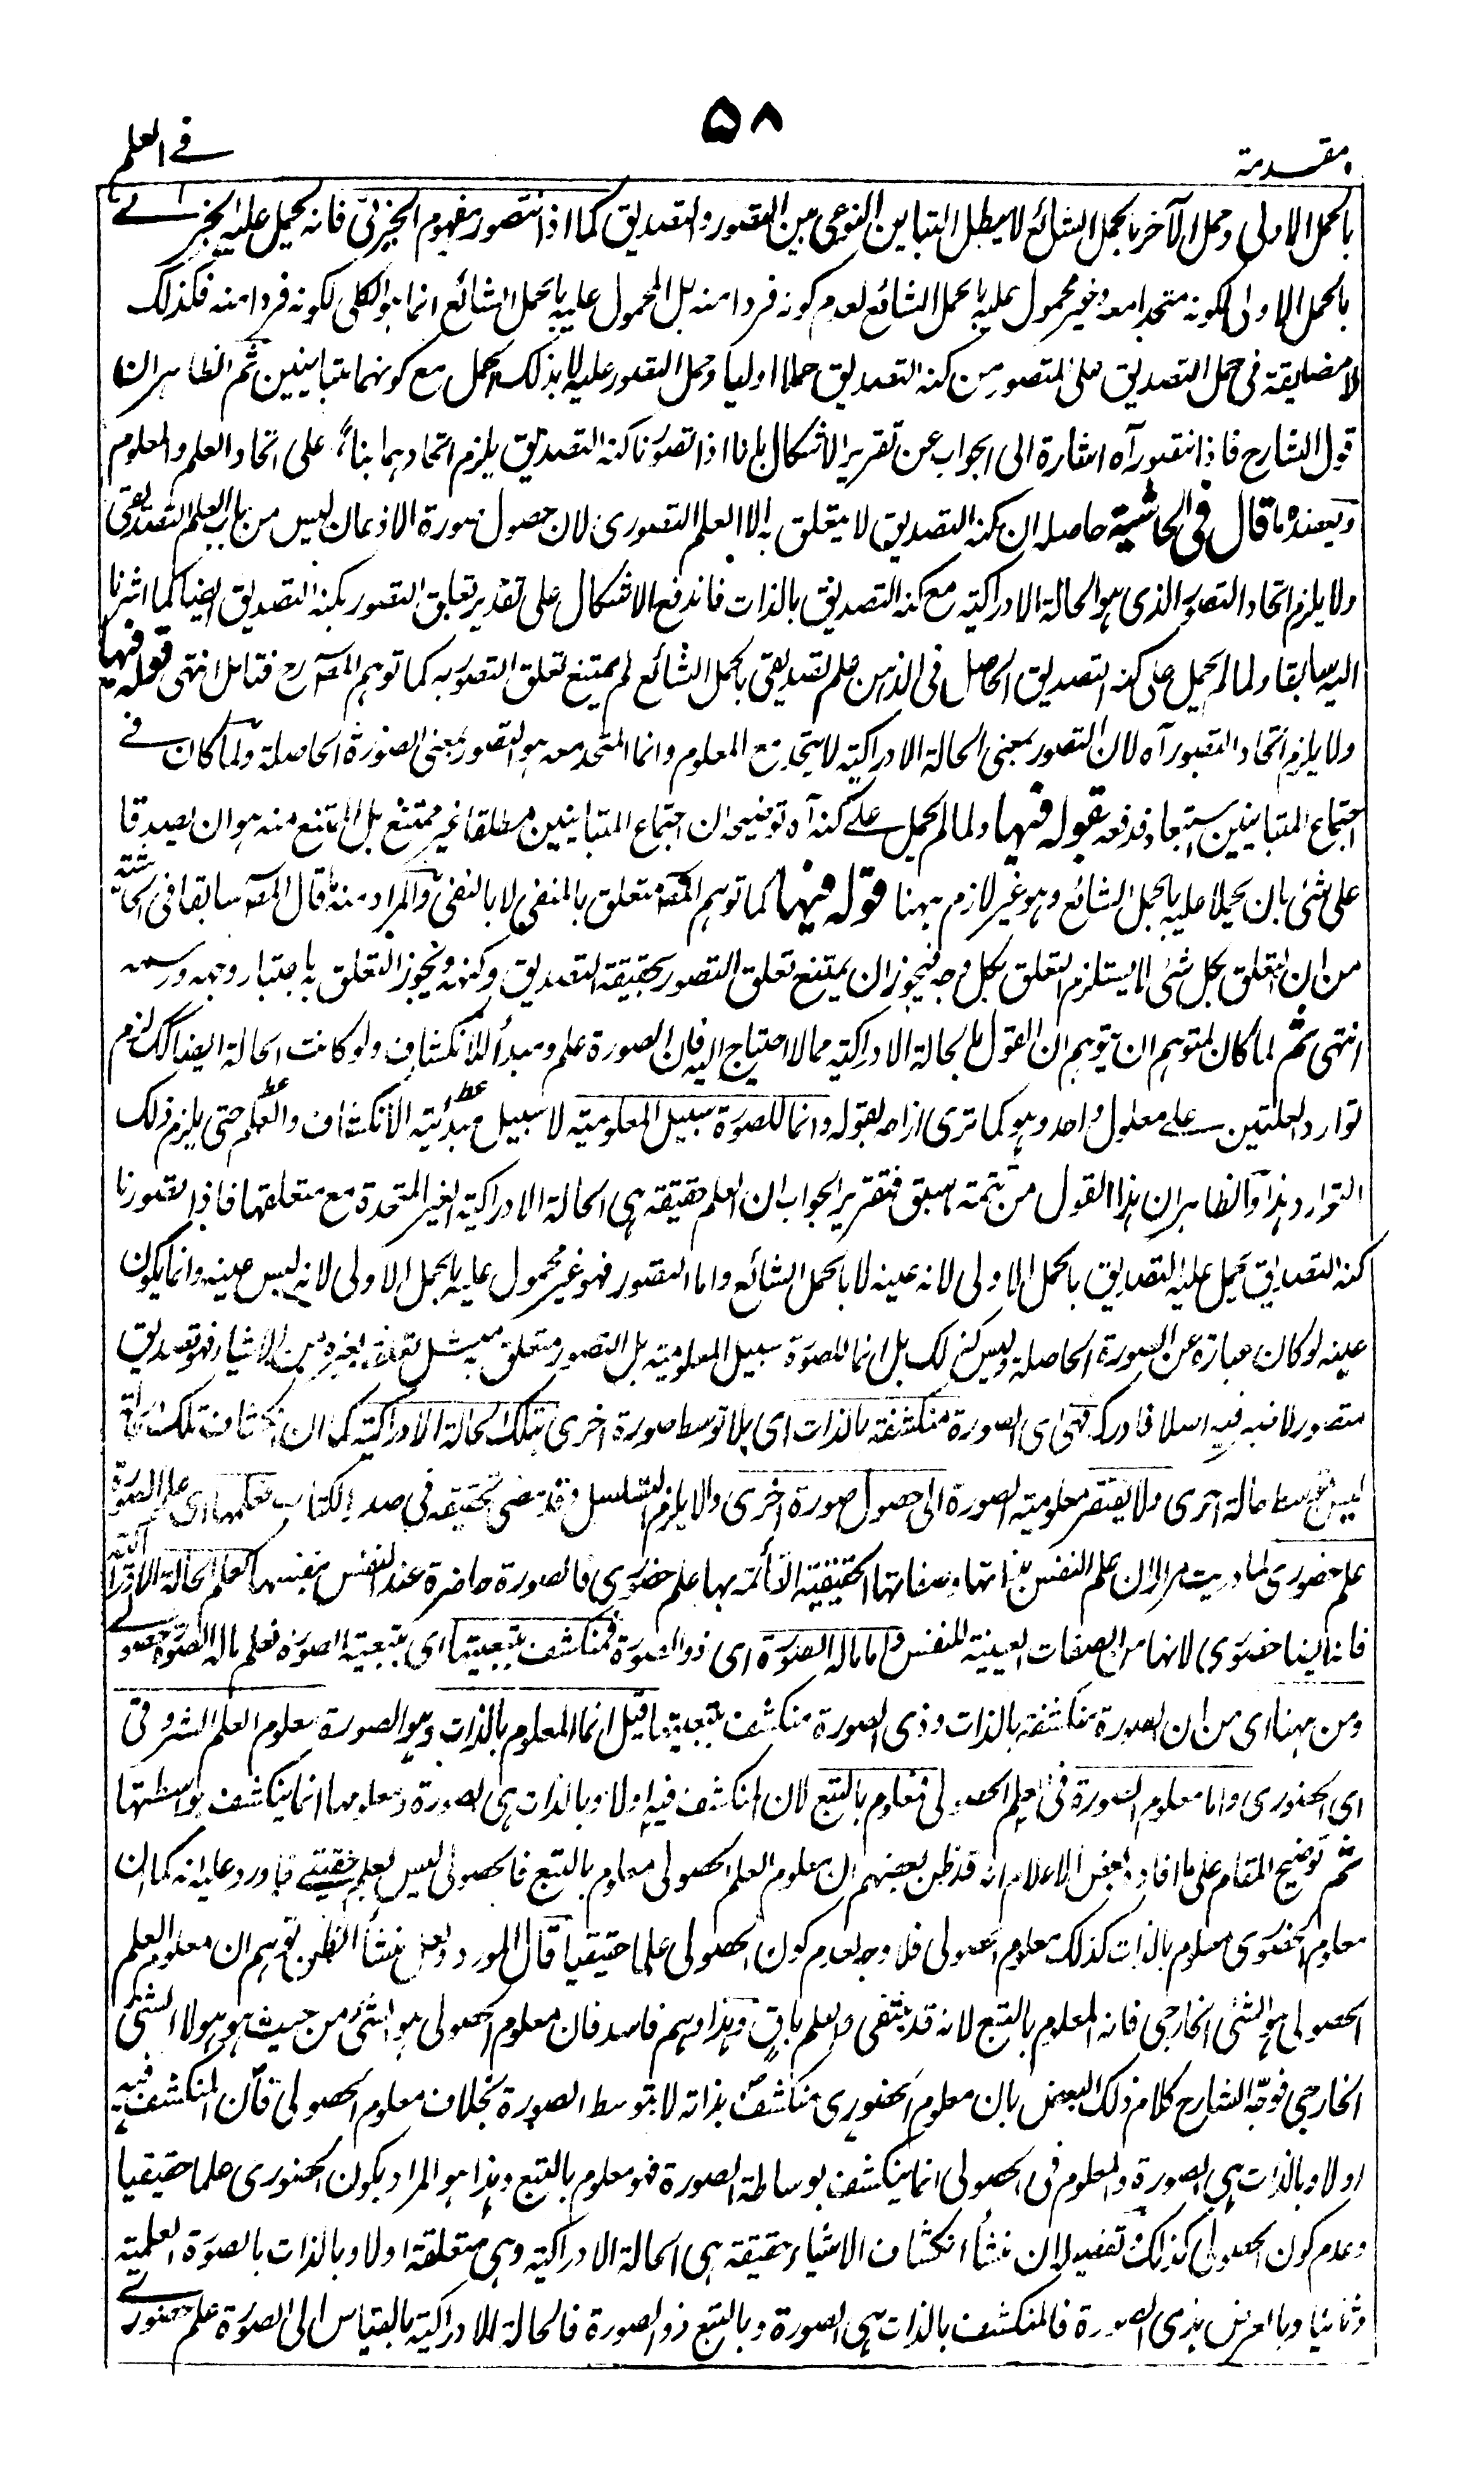 ۵۸
مقدمة
في العلم
بالحمل الاولى وحمل الآخر بالحمل الشائع لا يبطل التباين النوعي بين التصور والتصديق كما اذا تتصور مفهوم الجزئي فانه يحمل عليه الجزئي
بالحمل الاولى لكونه متحدا معه وغير محمول عليه بالحمل الشائع لعدم كونه فردا منه بل المحمول عليه بالحمل الشائع انما هو الكلي لكونه فردا منه فكذلك
لا مضايقة في حمل التصديق على المتصور من كنه التصديق حملا اوليا وحمل التصور عليه لا بذلك الحمل مع كونهما متباينين ثم الظاهر ان
قول الشارح فاذا نتصور آه اشارة الى الجواب عن تقرير الاشكال بانا اذا تصورنا كنه التصديق يلزم اتحادهما بناء على اتحاد العلم والمعلوم
ويعضده ما قال في الحاشية حاصله ان كنه التصديق لا يتعلق به الا العلم التصوري لان حصول صورة الاذعان ليس من باب العلم التصديقي
ولا يلزم اتحاد التصور الذي هو الحالة الادراكية مع كنه التصديق بالذات فاندفع الاشكال على تقدير تعلق التصور بكنه التصديق ايضا كما اشرنا
اليه سابقا ولما لم يحمل على كنه التصديق الحاصل في الذهن علم تصديقي بالحمل الشائع لم يمتنع تعلق التصور به كما توهم المصـ رح فتامل انتهى قوله فيها
ولا يلزم اتحاد التصور آه لان التصور بمعنى الحالة الادراكية لا يتحد مع المعلوم وانما المتحد معه هو التصور بمعنى الصورة الحاصلة ولما كان في
اجتماع المتباينين استبعاد فدفعه بقوله فيها ولما لم يحمل على كنه آه توضيحه ان اجتماع المتباينين مطلقا غير ممتنع بل الممتنع منه هو ان يصدقا
على شئ بان يحملا عليه بالحمل الشائع وهو غير لازم ههنا قوله فيها كما توهم المصـ متعلق بالمنفي لا بالنفي والمراد منه ما قال المصـ سابقا في الحاشية
من ان التعلق بكل شئ لا يستلزم التعلق بكل وجه فيجوز ان يمتنع تعلق التصور بحقيقة التصديق وكنهه ويجوز التعلق باعتبار وجهه ورسمه
انتهى ثم لما كان لمتوهم ان يتوهم ان القول بالحالة الادراكية مما لا احتياج اليه فان الصورة علم ومبدأ للانكشاف ولو كانت الحالة ايضا كك لزم
توارد العلتين على معلول واحد وهو كما ترى ازاحه بقوله وانما للصورة سبيل المعلومية لا سبيل مبدئية الانكشاف والعلم حتى يلزم ذلك
التوارد هذا والظاهر ان هذا القول من تتمة ما سبق فتقرير الجواب ان العلم حقيقة هي الحالة الادراكية الغير المتحدة مع متعلقها فاذا تصورنا
كنه التصديق يحمل عليه التصديق بالحمل الاولى لانه عينه لا بالحمل الشائع واما التصور فهو غير محمول عليه بالحمل الاولى لانه ليس عينه وانما يكون
عينه لو كان عبارة عن الصورة الحاصلة وليس كذلك بل انما للصورة سبيل المعلومية بل التصور متعلق به مثل تعلقه بغيره من الاشياء فهو تصديق
متصور لا شبه فيه اصلا فادركه فهي اى الصورة منكشفة بالذات اى بلا توسط صورة اخرى بتلك الحالة الادراكية كما ان انكشاف تلك الحالة
ليس بتوسط حالة اخرى ولا يفتقر معلومية الصورة الى حصول صورة اخرى والا يلزم التسلسل وقد مضى تحقيقه في صدر الكتاب فعلمها اى علم الصورة
علم حضوري لما دريت مرارا ان علم النفس بذاتها وصفاتها الحقيقية القائمة بها علم حضوري فالصورة حاضرة عند النفس بنفسها كعلم الحالة الادراكية
فانه ايضا حضوري لانها من الصفات العينية للنفس واما ماله الصورة اى ذو الصورة فمنكشف بتبعيتها اى بتبعية الصورة فعلم ماله الصورة حصولي
ومن ههنا اى من ان الصورة منكشفة بالذات وذى الصورة منكشف بتبعيته ما قيل انما المعلوم بالذات وهو الصورة معلوم العلم الشروقي
اى الحضوري واما معلوم الصورة في العلم الحصولي فمعلوم بالتبع لان المنكشف فيه اولا وبالذات هي الصورة ومعلومها انما ينكشف بواسطتها
ثم توضيح المقام على ما افاده بعض الاعلام انه قد ظن بعضهم ان معلوم العلم الحصولي معلوم بالتبع فالحصولي ليس بعلم حقيقي فاورد عليه انه كما ان
معلوم الحضوري معلوم بالذات كذلك معلوم الحصولي فلا وجه لعدم كون الحصولي علما حقيقيا قال المورد ولعل منشأ الظن توهم ان معلوم العلم
الحصولي هو الشئ الخارجي فانه المعلوم بالتبع لانه قد ينتفى والعلم باق وهذا وهم فاسد فان معلوم الحصولي هو الشئ من حيث هو هو لا الشئ
الخارجي فوجّه الشارح كلام ذلك البعض بان معلوم الحضوري منكشف بذاته لا بتوسط الصورة بخلاف معلوم الحصولي فان المنكشف فيه
اولا وبالذات هي الصورة والمعلوم في الحصولي انما ينكشف بوساطة الصورة فهو معلوم بالتبع وهذا هو المراد بكون الحضوري علما حقيقيا
وعدم كون الحصولي كذلك تفصيله ان منشأ انكشاف الاشياء حقيقة هي الحالة الادراكية وهي متعلقة اولا وبالذات بالصورة العلمية
وثانيا وبالعرض بذى الصورة فالمنكشف بالذات هي الصورة وبالتبع ذو الصورة فالحالة الادراكية بالقياس الى الصورة علم حضوري